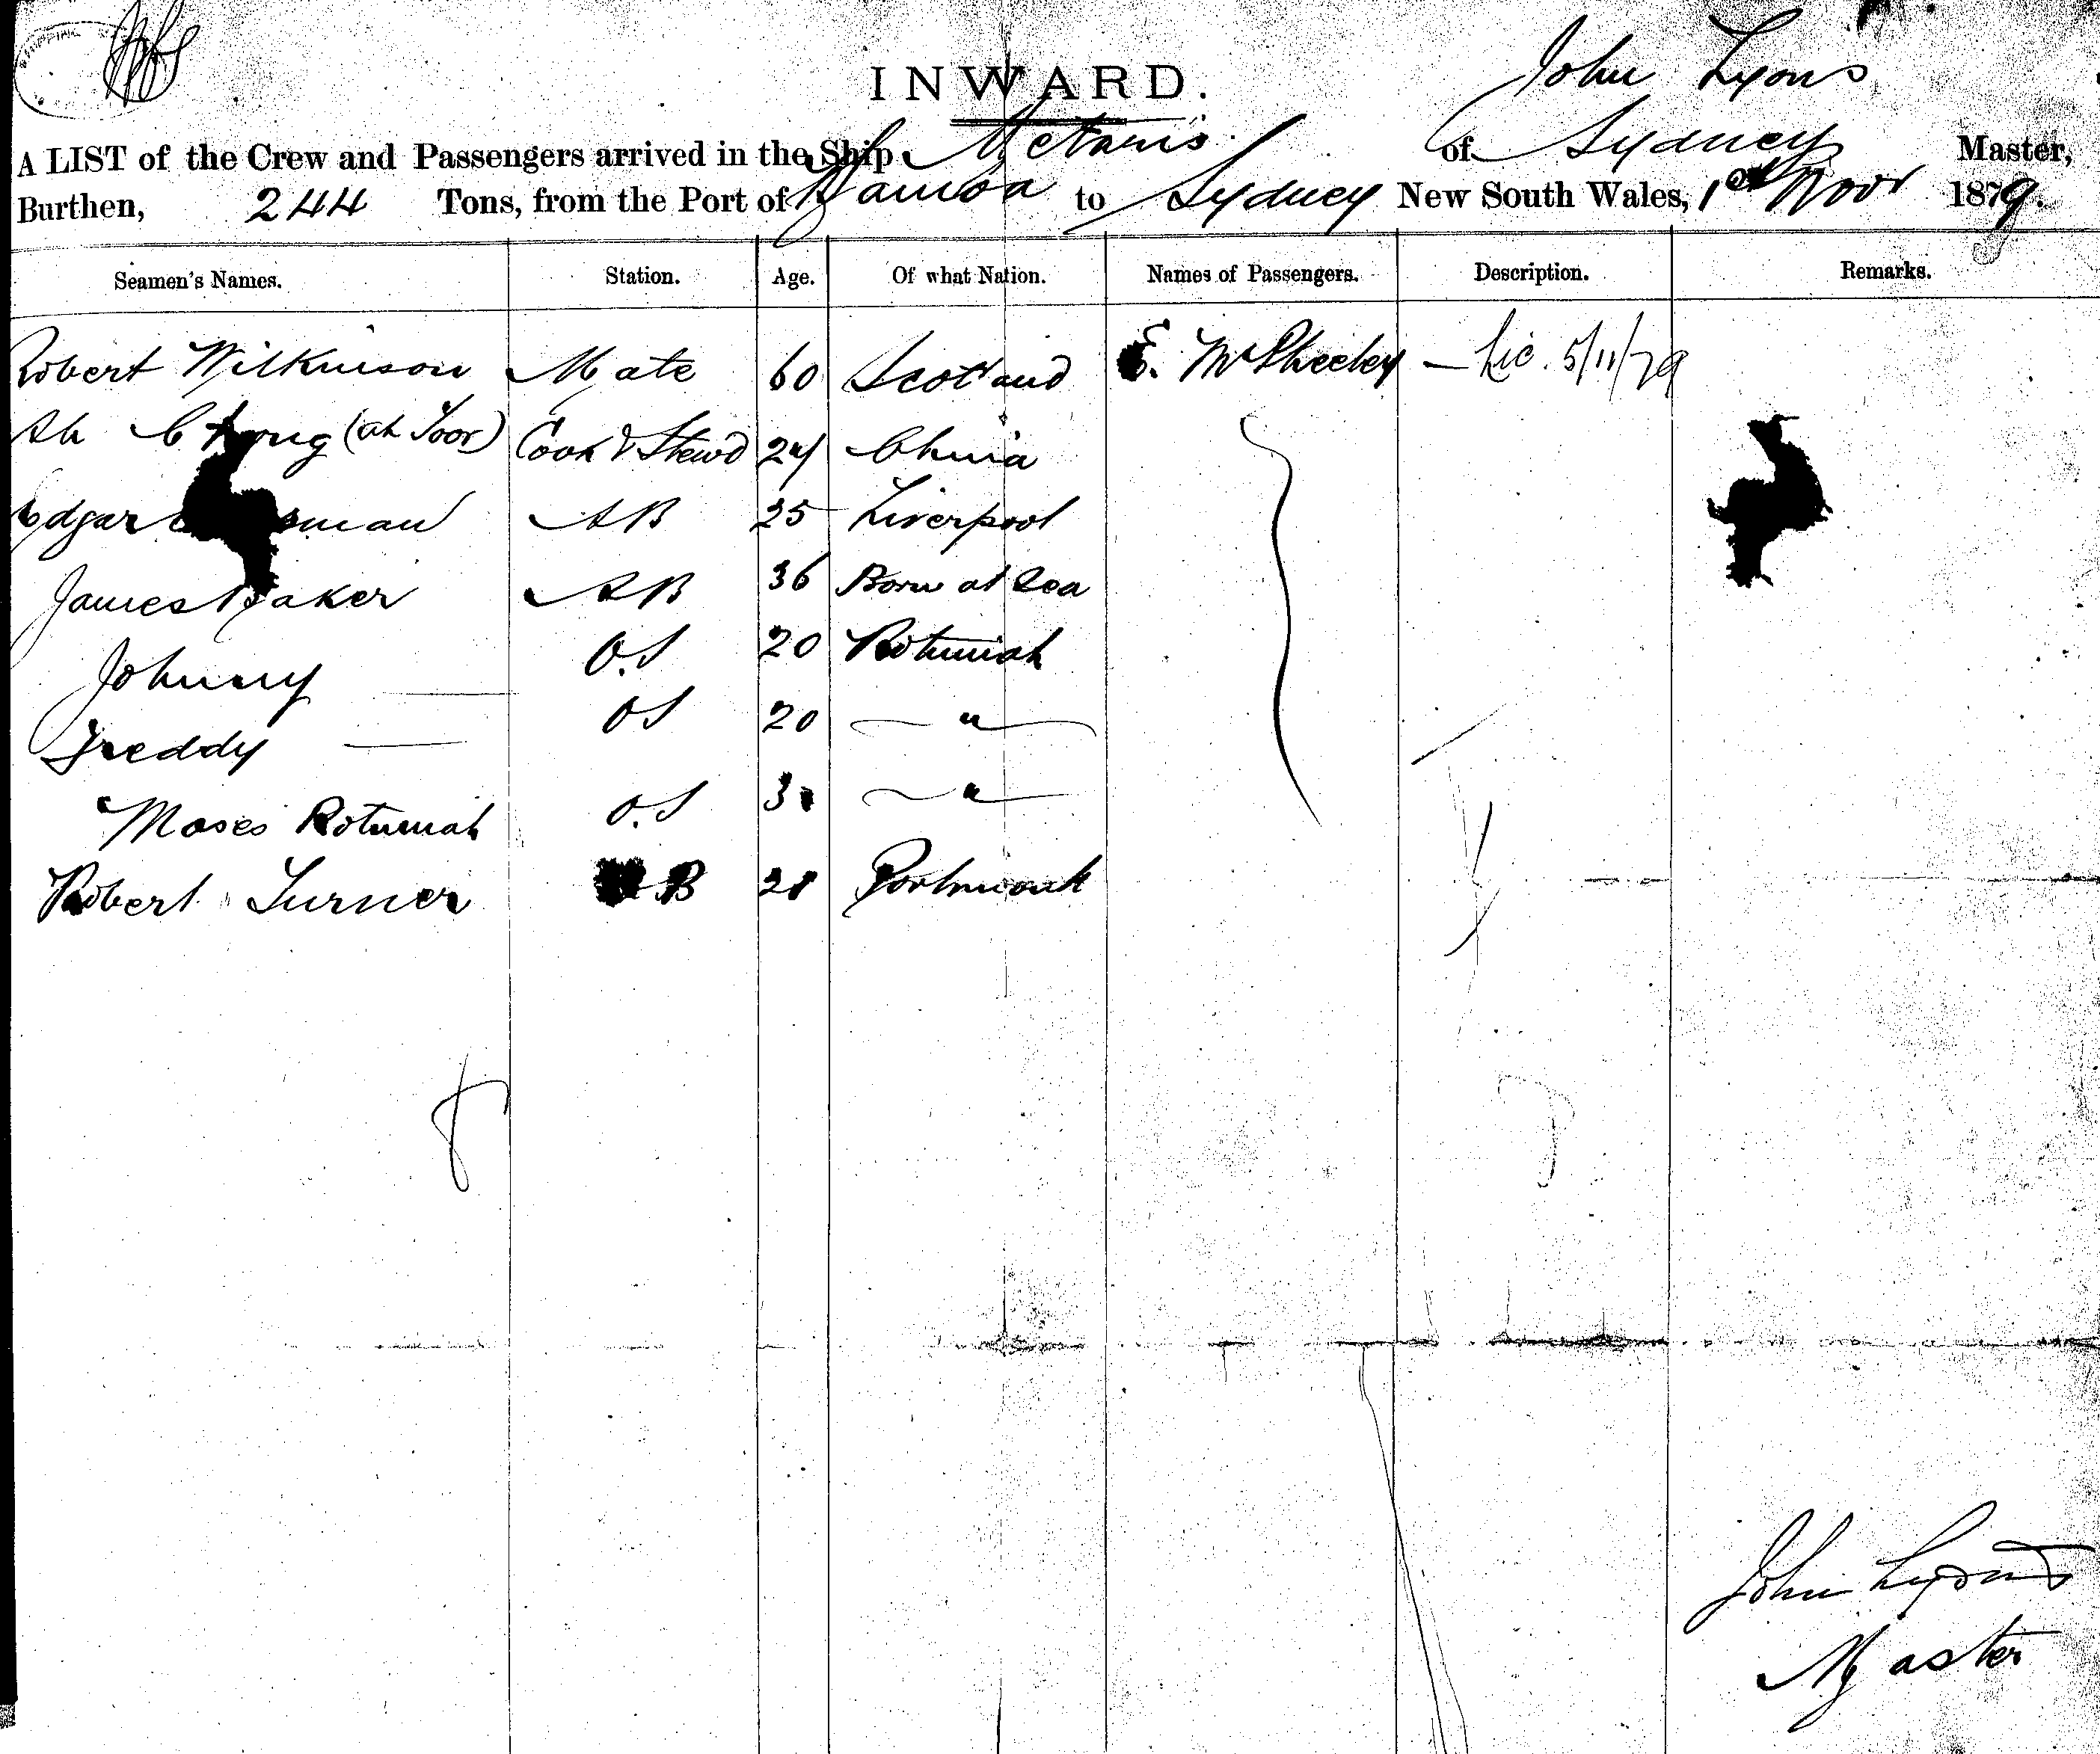 SHIPPING
INWARD.
John Lyons
A LIST of the Crew and Passengers arrived in the Ship Metaris of Sydney Master,
Burthen, 244 Tons, from the Port of Samoa to Sydney New South Wales, 1st Novr 1879.
Seamen's Names. Station. Age. Of what Nation. Names of Passengers. Description. Remarks.
Robert Wilkinson Mate 60 Scotland E. McPheeley — Lic. 5/11/79
Ah Chong (Ah Toor) Cook & Stewd 24 China
Edgar AB 25 Liverpool
James Baker AB 36 Born at Sea
Johnny O.S 20 Rotumah
Freddy OS 20 "
Moses Rotumah O.S "
Robert Turner AB 28
8
John Lyons
Master